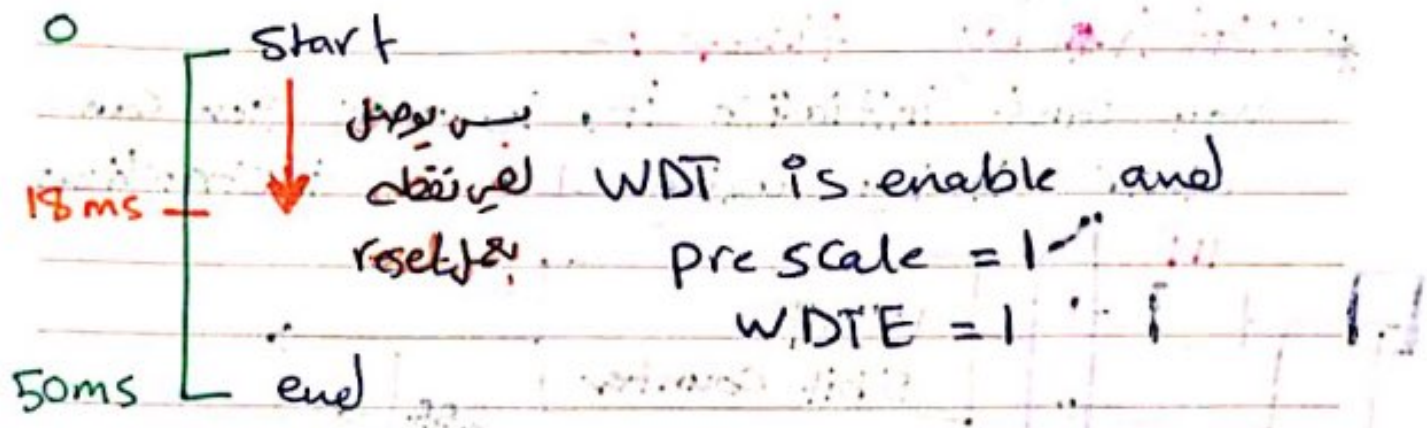 0 Start
بس يوصل
لهي نقطه WDT is enable and
18ms
بعمل reset prescale = 1
WDTE = 1
50ms end